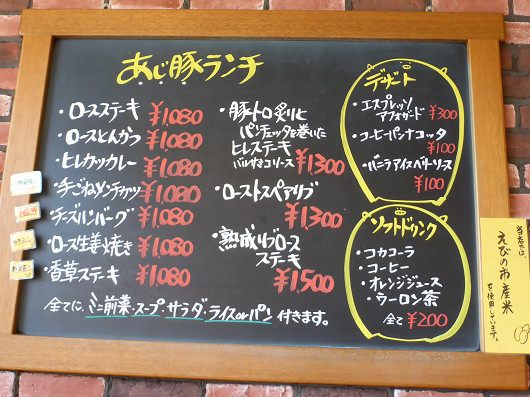 あじ豚ランチ
・ロースステーキ ¥1,080
・ロースとんかつ ¥1,080
・ヒレカツカレー ¥1,080
・手ごねメンチカツ ¥1,080
・チーズハンバーグ ¥1,080
・ロース生姜焼き ¥1,080
・香草ステーキ ¥1,080
・豚トロ炙りと
パンチェッタを巻いた
ヒレステーキ
バルサミコソース ¥1,300
・ローストスペアリブ
¥1,300
・熟成リブロース
ステーキ
¥1,500
全てに、ミニ前菜・スープ・サラダ・ライスorパン 付きます。
デザート
・エスプレッソ
アフォガード ¥300
・コーヒーパンナコッタ
¥100
・バニラアイスベトリソース
¥100
ソフトドリンク
・コカコーラ
・コーヒー
・オレンジジュース
・ウーロン茶
全て ¥200
当店では、
えびの市産米
を使用しています。